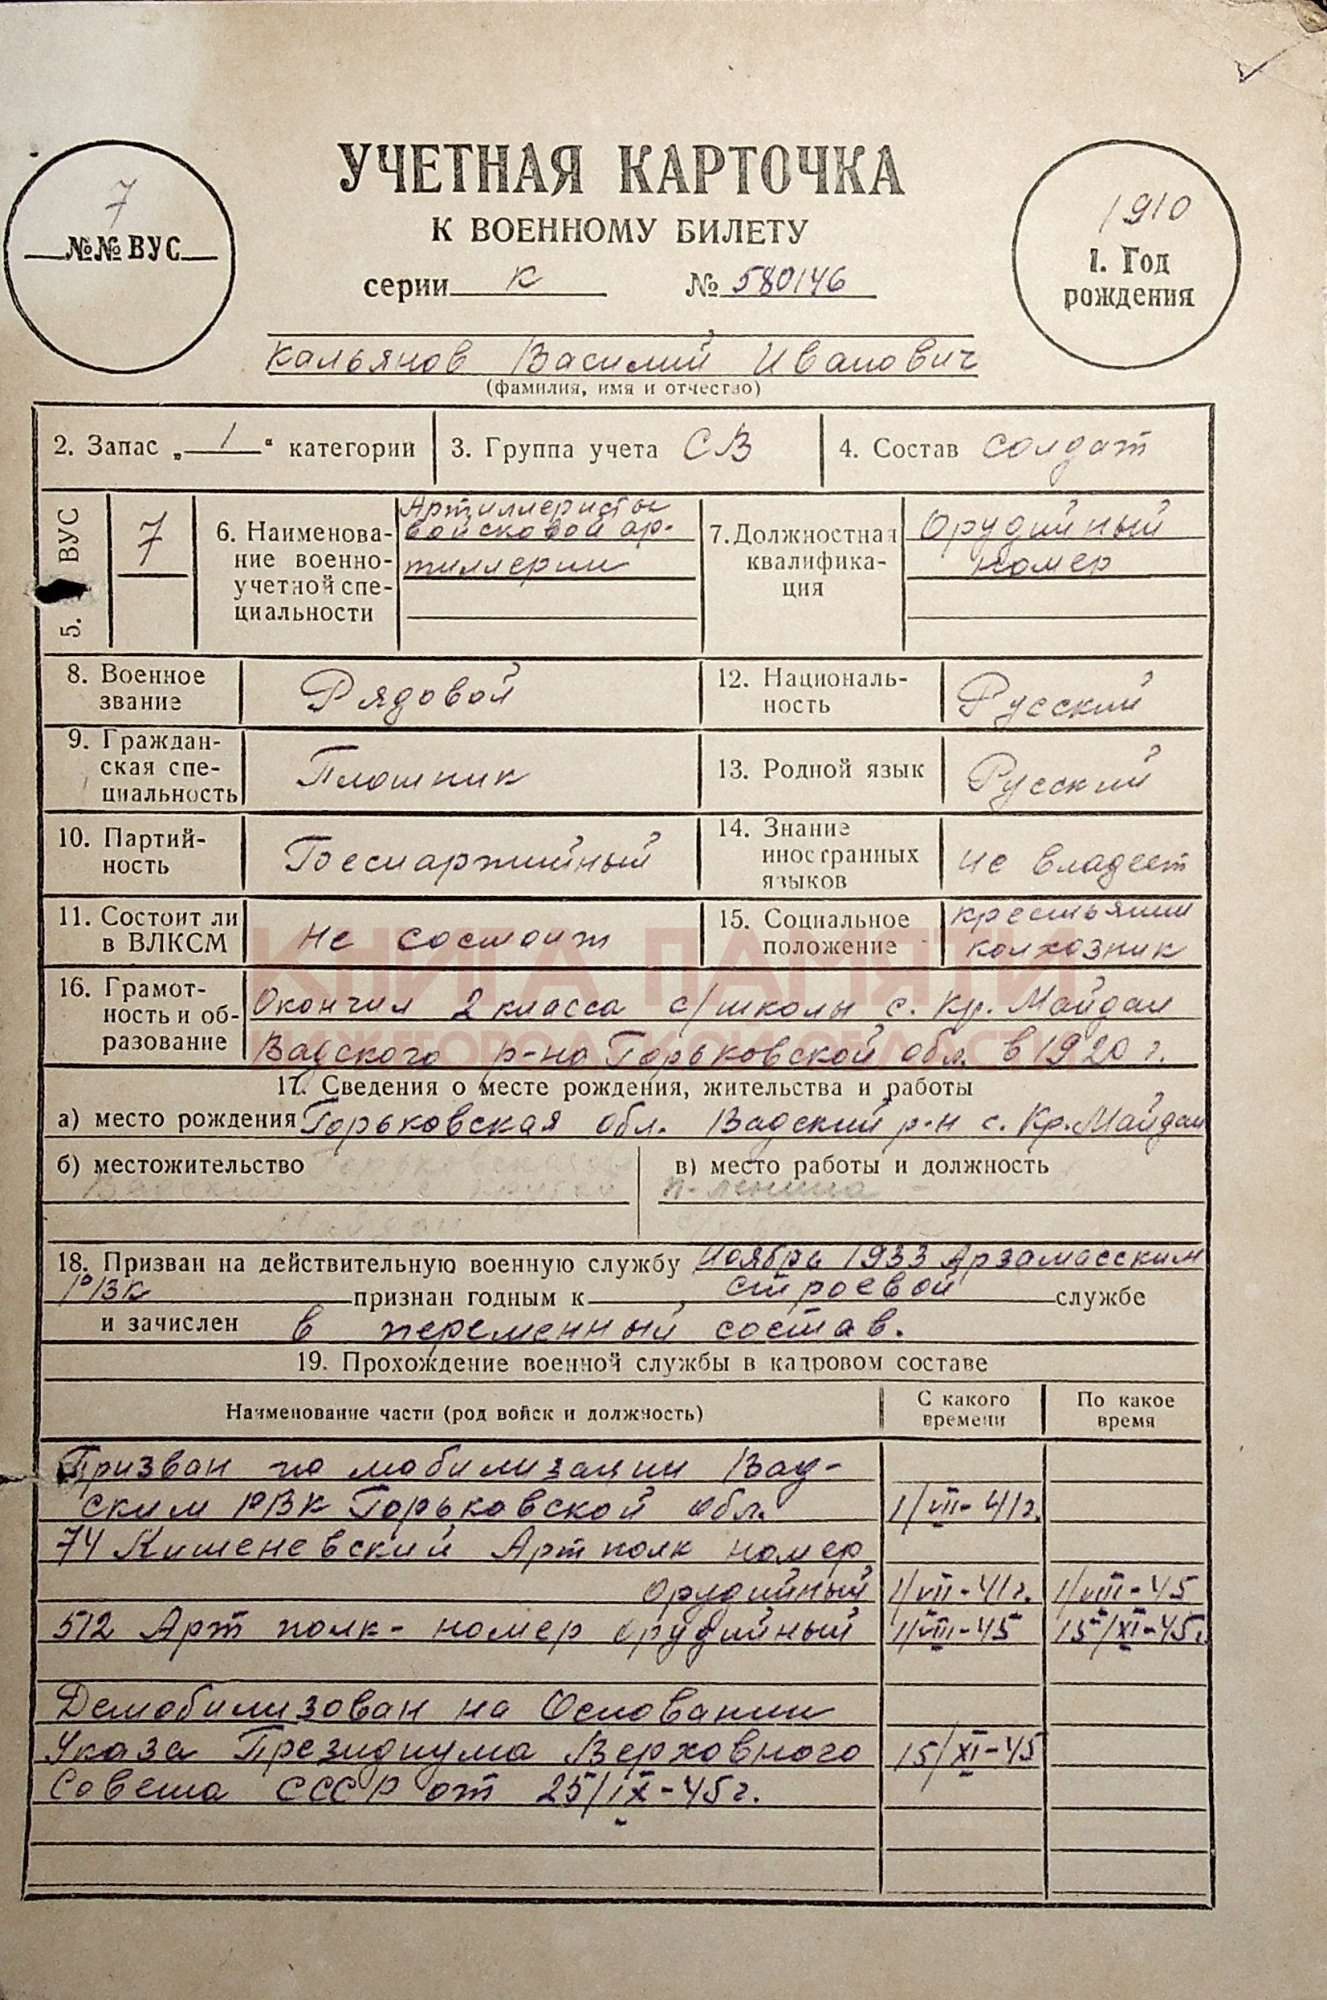 УЧЕТНАЯ КАРТОЧКА
К ВОЕННОМУ БИЛЕТУ
серии К № 580146
7
№№ ВУС
1910
1. Год
рождения
Кальянов Василий Иванович
(фамилия, имя и отчество)
2. Запас „1“ категории
3. Группа учета СВ
4. Состав солдат
5. ВУС
7
6. Наименова-
ние военно-
учетной спе-
циальности
Артиллеристы
войсковой ар-
тиллерии
7. Должностная
квалифика-
ция
Орудийный
номер
8. Военное
звание
Рядовой
12. Националь-
ность
Русский
9. Граждан-
ская спе-
циальность
Плотник
13. Родной язык
Русский
10. Партий-
ность
Беспартийный
14. Знание
иностранных
языков
не владеет
11. Состоит ли
в ВЛКСМ
Не состоит
15. Социальное
положение
крестьянин
колхозник
КНИГА ПАМЯТИ
НИЖЕГОРОДСКОЙ ОБЛАСТИ
16. Грамот-
ность и об-
разование
Окончил 2 класса с/школы с. Кр. Майдан
Вадского р-на Горьковской обл. в 1920 г.
17. Сведения о месте рождения, жительства и работы
а) место рождения Горьковская обл. Вадский р-н с. Кр. Майдан
б) местожительство Горьковская
Вадский
Майдан
в) место работы и должность
к-Ленина
18. Призван на действительную военную службу ноябрь 1933 Арзамасским
РВК признан годным к строевой службе
и зачислен в переменный состав.
19. Прохождение военной службы в кадровом составе
Наименование части (род войск и должность)
С какого
времени
По какое
время
Призван по мобилизации Вад-
ским РВК Горьковской обл. 1/VII-41г.
74 Кишеневский Арт полк номер
орудийный 1/VII-41г. 1/VIII-45
512 Арт полк - номер орудийный 1/VIII-45 15/XI-45г.
Демобилизован на Основании
Указа Президиума Верховного 15/XI-45
Совета СССР от 25/IX-45г.